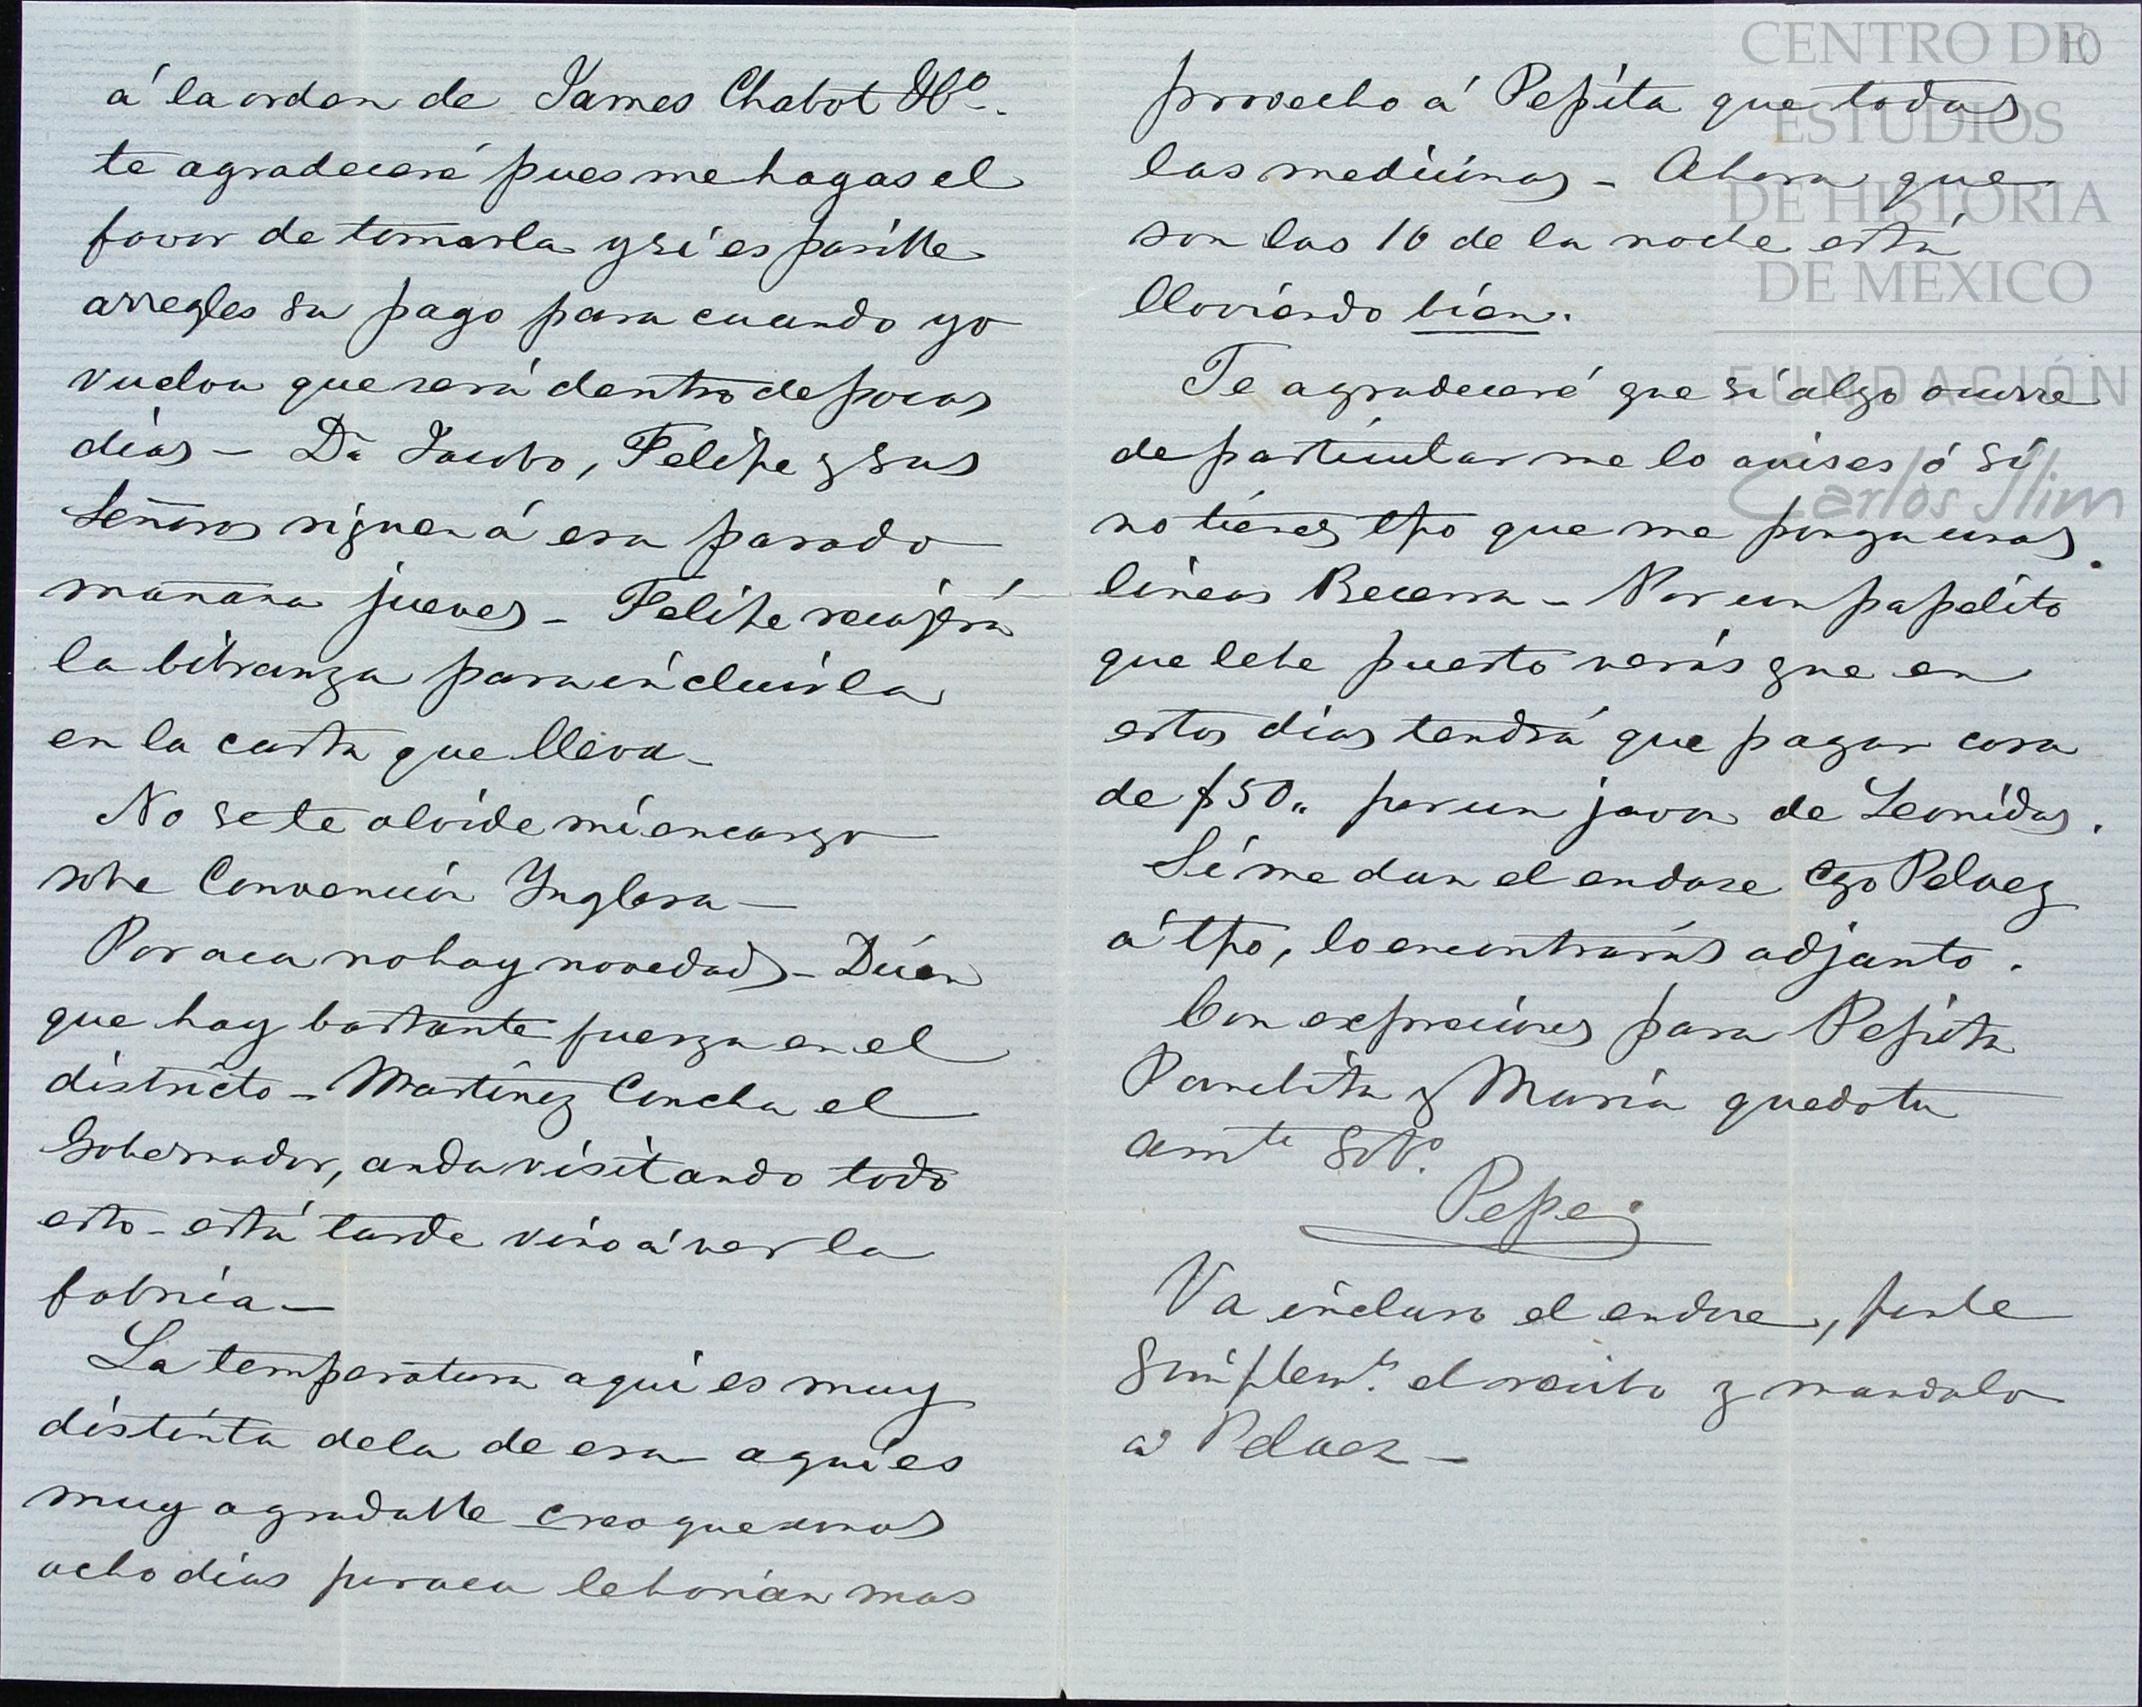 á la orden de James Chabot Hº.
te agradeceré pues me hagas el
favor de tomarla y si es posible
arregles su pago para cuando yo
vuelva que será dentro de pocos
días — Dⁿ Jacobo, Felipe y sus
Señoras siguen á esa pasado
mañana jueves — Felipe recojerá
la libranza para incluirla
en la carta que lleva —
No se te olvide mi encargo
sobre Convención Ynglesa —
Por aca no hay novedad — Dicen
que hay bastante fuerza en el
districto — Martinez Concha el
Gobernador, anda visitando todo
esto — está tarde vino á ver la
fabrica —
La temperatura aqui es muy
distinta de la de esa aqui es
muy agradable creo que unos
ocho dias por aca le harían mas
10
provecho á Pepita que todas
las medicinas — Ahora que
son las 10 de la noche está
lloviendo bien.
Te agradeceré que si algo ocurre
de particular me lo avises ó si
no tienes tpo que me ponga unas
lineas Becerra — Por un papelito
que le he puesto verás que en
estos dias tendrá que pagar cosa
de $50„ por un favor de Leonidas.
Si me dan el endose Cgo Pelaez
á tpo, lo encontrarás adjunto.
Con expresiones para Pepita
Panchita y Maria quedo tu
amte
Pepe
Va incluso el endose, ponle
Simplemte. el recibo y mandalo
a Pelaez —
CENTRO DE
ESTUDIOS
DE HISTORIA
DE MEXICO
FUNDACIÓN
Carlos Slim